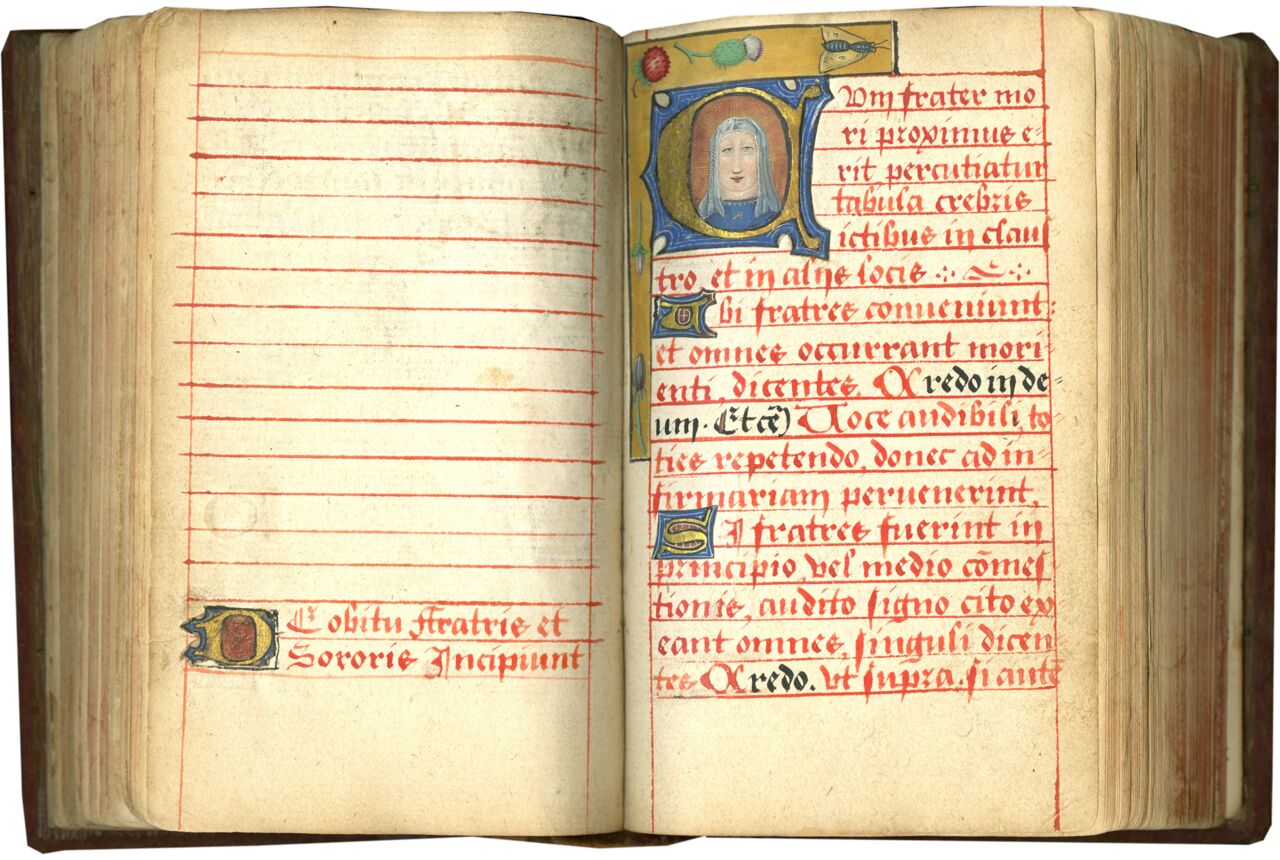 DE obitu ffratris et
Sororis Incipiunt
CVm frater mo
ri proximus e-
rit percutiatur
tabula crebris
ictibus in claus
tro, et in alijs locis
Vbi fratres conueniunt:
et omnes occurrant mori-
enti, dicentes. Credo in de-
um. Et cē) Uoce audibili, to
ties repetendo, donec ad in-
firmariam peruenerint,
SI fratres fuerint in
principio, vel medio cōmes
tionis, audito signo cito ex
eant omnes, singuli dicen
tes Credo. vt supra. si autē